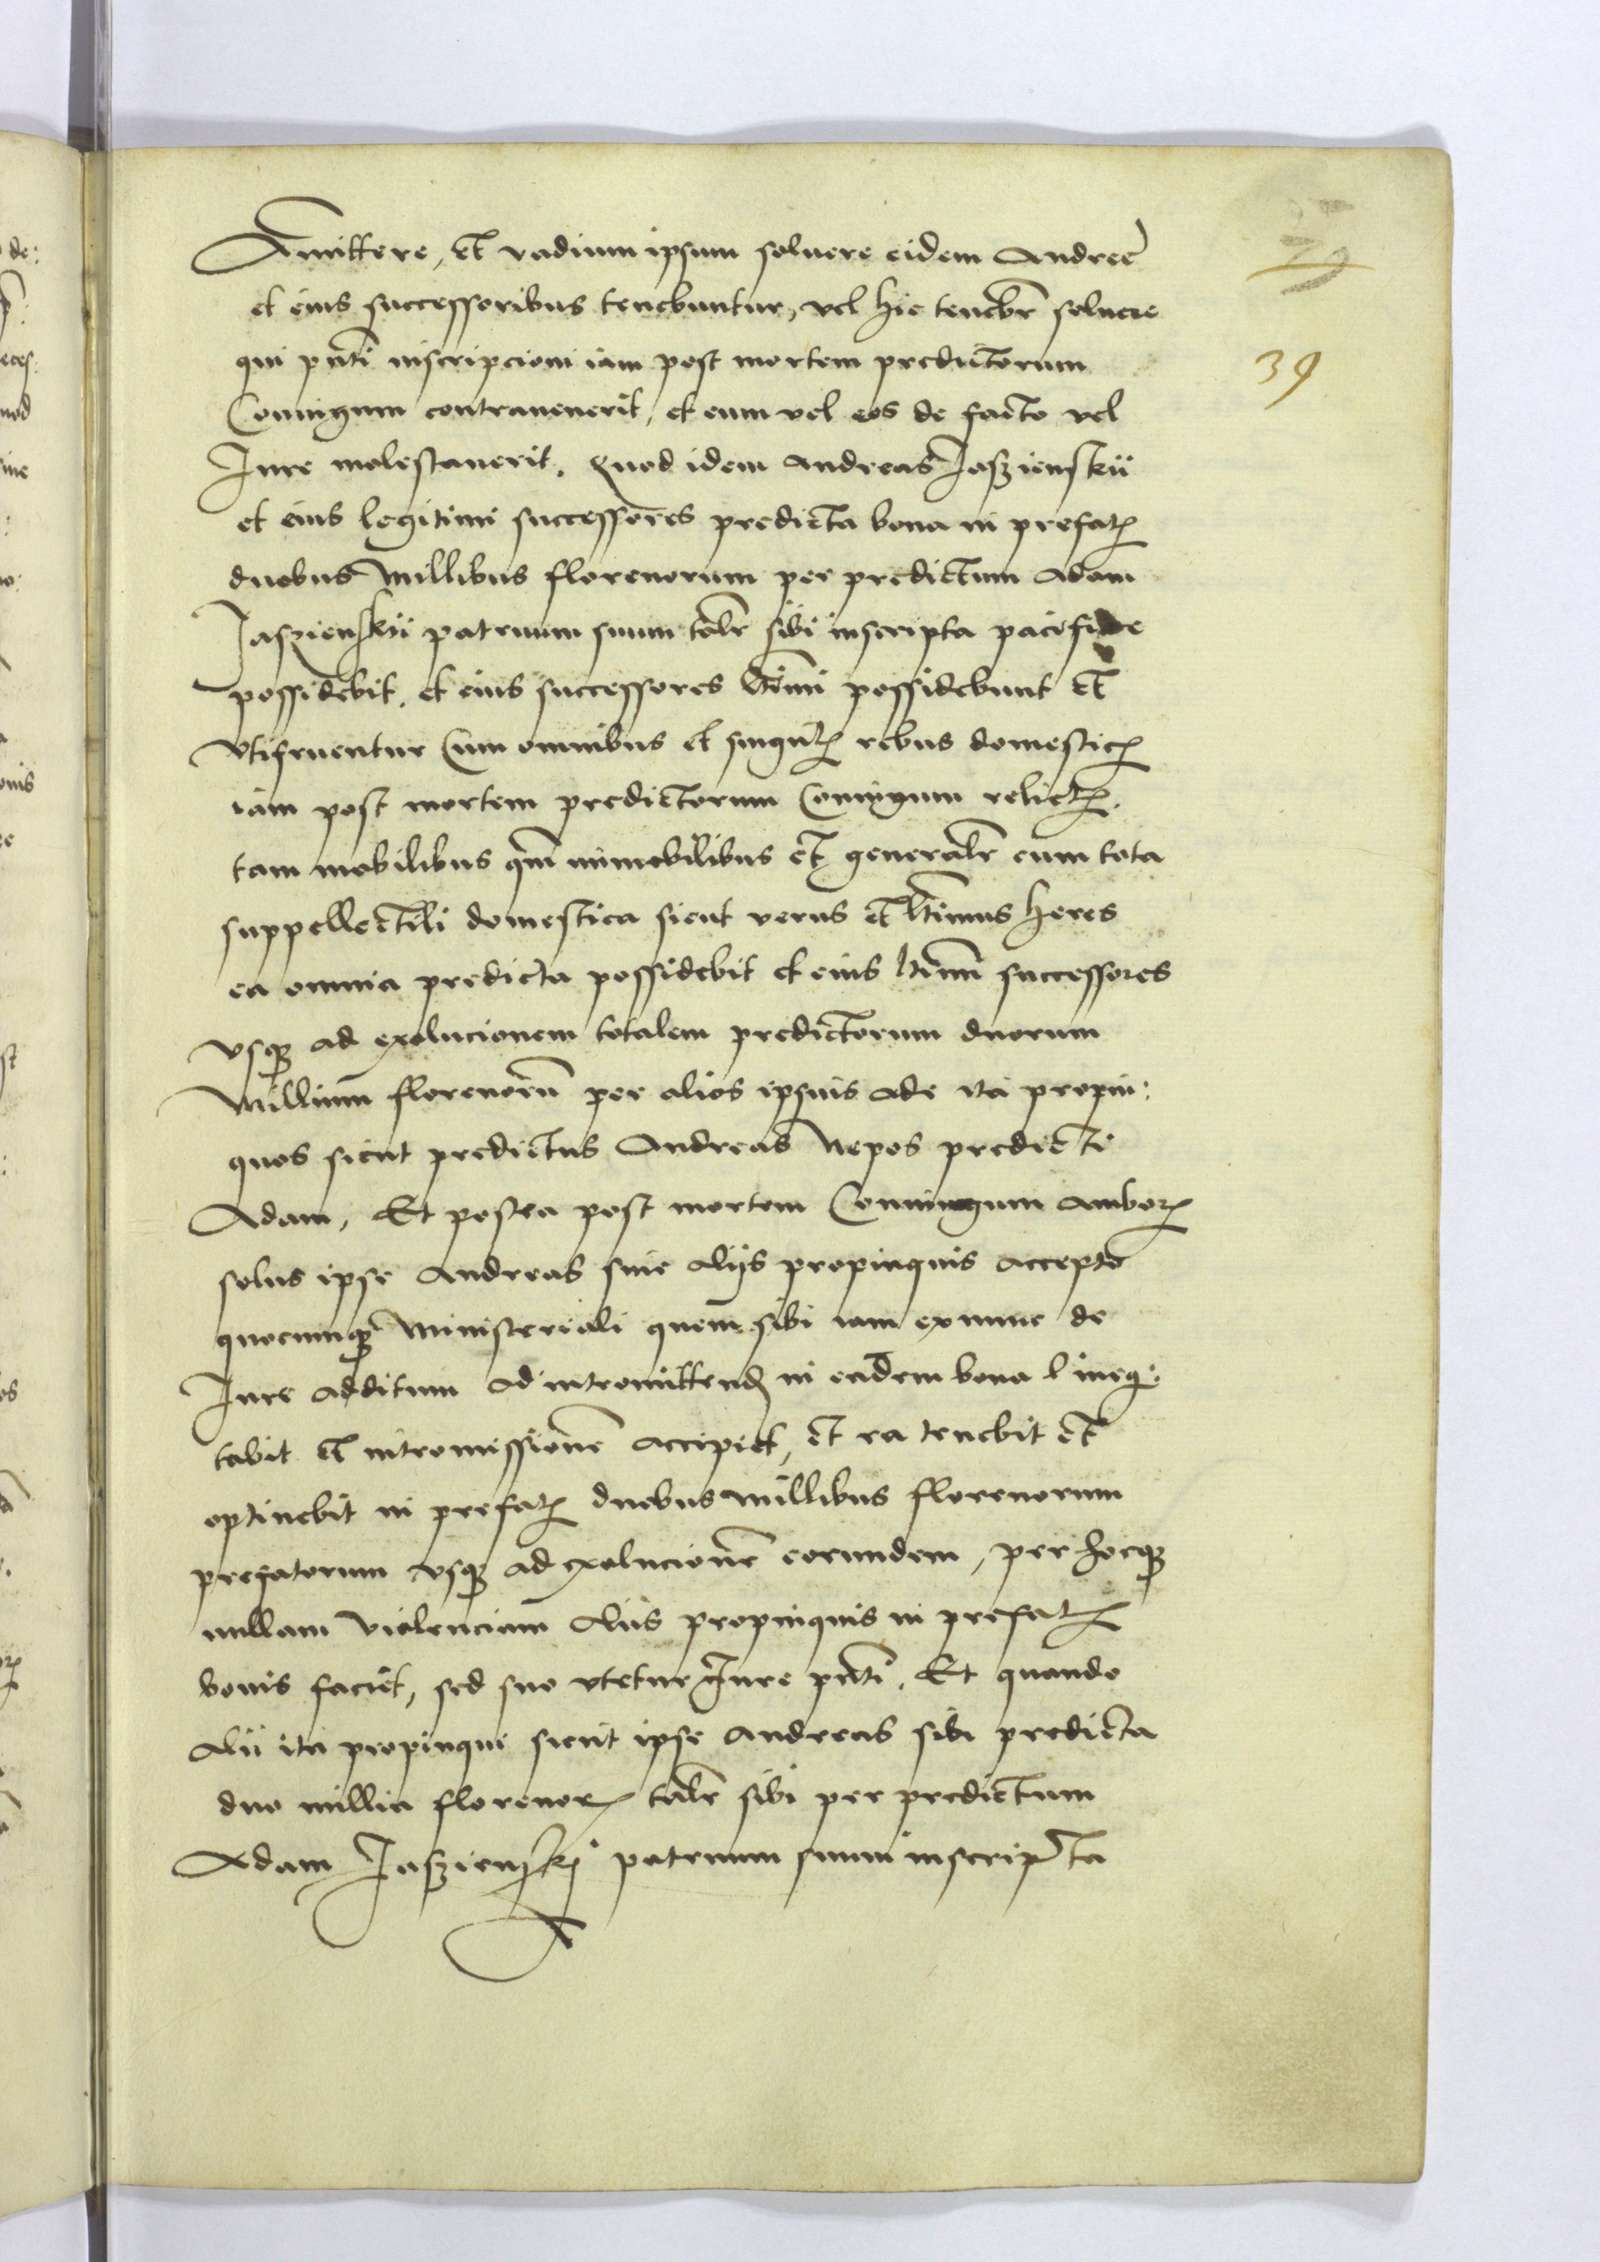 Amittere, et vadium ipsum soluere eidem Andree
et eius successoribus tenebuntur, vel hic tenebr soluere
qui pnti inscripcioni iam post mortem predictorum
Coniugum contrauenerit, et eum vel eos de facto vel
Jure molestauerit. Quod idem Andreas Jaszienskii
et eius legitimi successores predicta bona in prefatꝭ
duobus Millibus florenorum per predictum Adam
Jaszienskii patruum suum talr sibi inscripta pacifice
possidebit, et eius successores ltimi possidebunt et
vtifruentur Cum omnibus et singulꝭ rebus domesticꝭ
iam post mortem predictorum Coniugum relictꝭ,
tam mobilibus qm immobilibus et generalr cum tota
suppellectili domestica sicut verus et ltimus heres
ea omnia predicta possidebit et eius ltimi successores
vsqꝫ ad exolucionem totalem predictorum duorum
Millium florenorum per alios ipsius Ade ita propin:
quos sicut predictus Andreas Nepos predicti
Adam, Et postea post mortem Coniugum amborꝝ
solus ipse Andreas sine aliis propinquis accepto
quocumqꝫ Ministeriali quem sibi iam ex nunc de
Jure additum ad intromittendꝭ in eadem bona
tabit et intromissionem accipiet, et ea tenebit et
optinebit in prefatꝭ duobus Millibus florenorum
prefatorum vsqꝫ ad exolucionem eorundem, per hocqꝫ
nullam violenciam aliis propinquis in prefatꝭ
bonis faciet, sed suo vtetur Jure pnti. Et quando
alii ita propinqui sicut ipse Andreas sibi predicta
duo millia florenorꝝ talr sibi per predictum
Adam Jaszienskj patruum suum inscripta
39